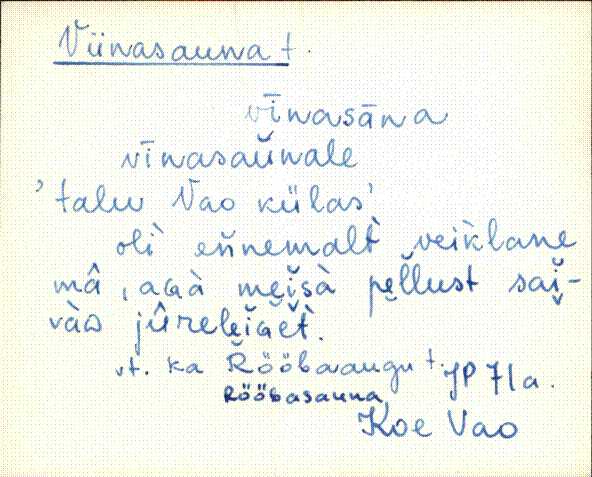 Viinasauna t.
vīnasāna
vīnasaŭnale
'talu Vao külas'
olì̬ eňnemalt̀ veiklane
mâ, aGà mei̭š̬à pel̆lust sai-
vàD jûreleiGèt̀.
vt. ka Rööbaaugu t. JP 71a.
Rööbasauna
Koe Vao